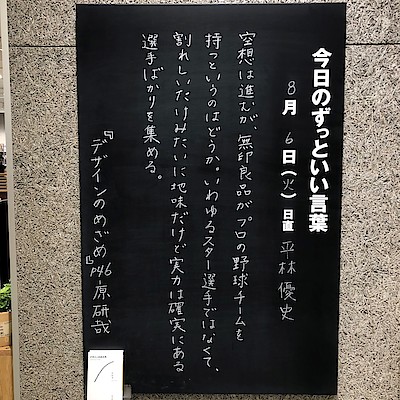 今日のずっといい言葉
8月6日(火)日直 平林優史
空想は進むが、無印良品がプロの野球チームを
持つというのはどうか。いわゆるスター選手ではなくて、
割れしいたけみたいに地味だけど実力は確実にある
選手ばかりを集める。
『デザインのめざめ』P46 原研哉